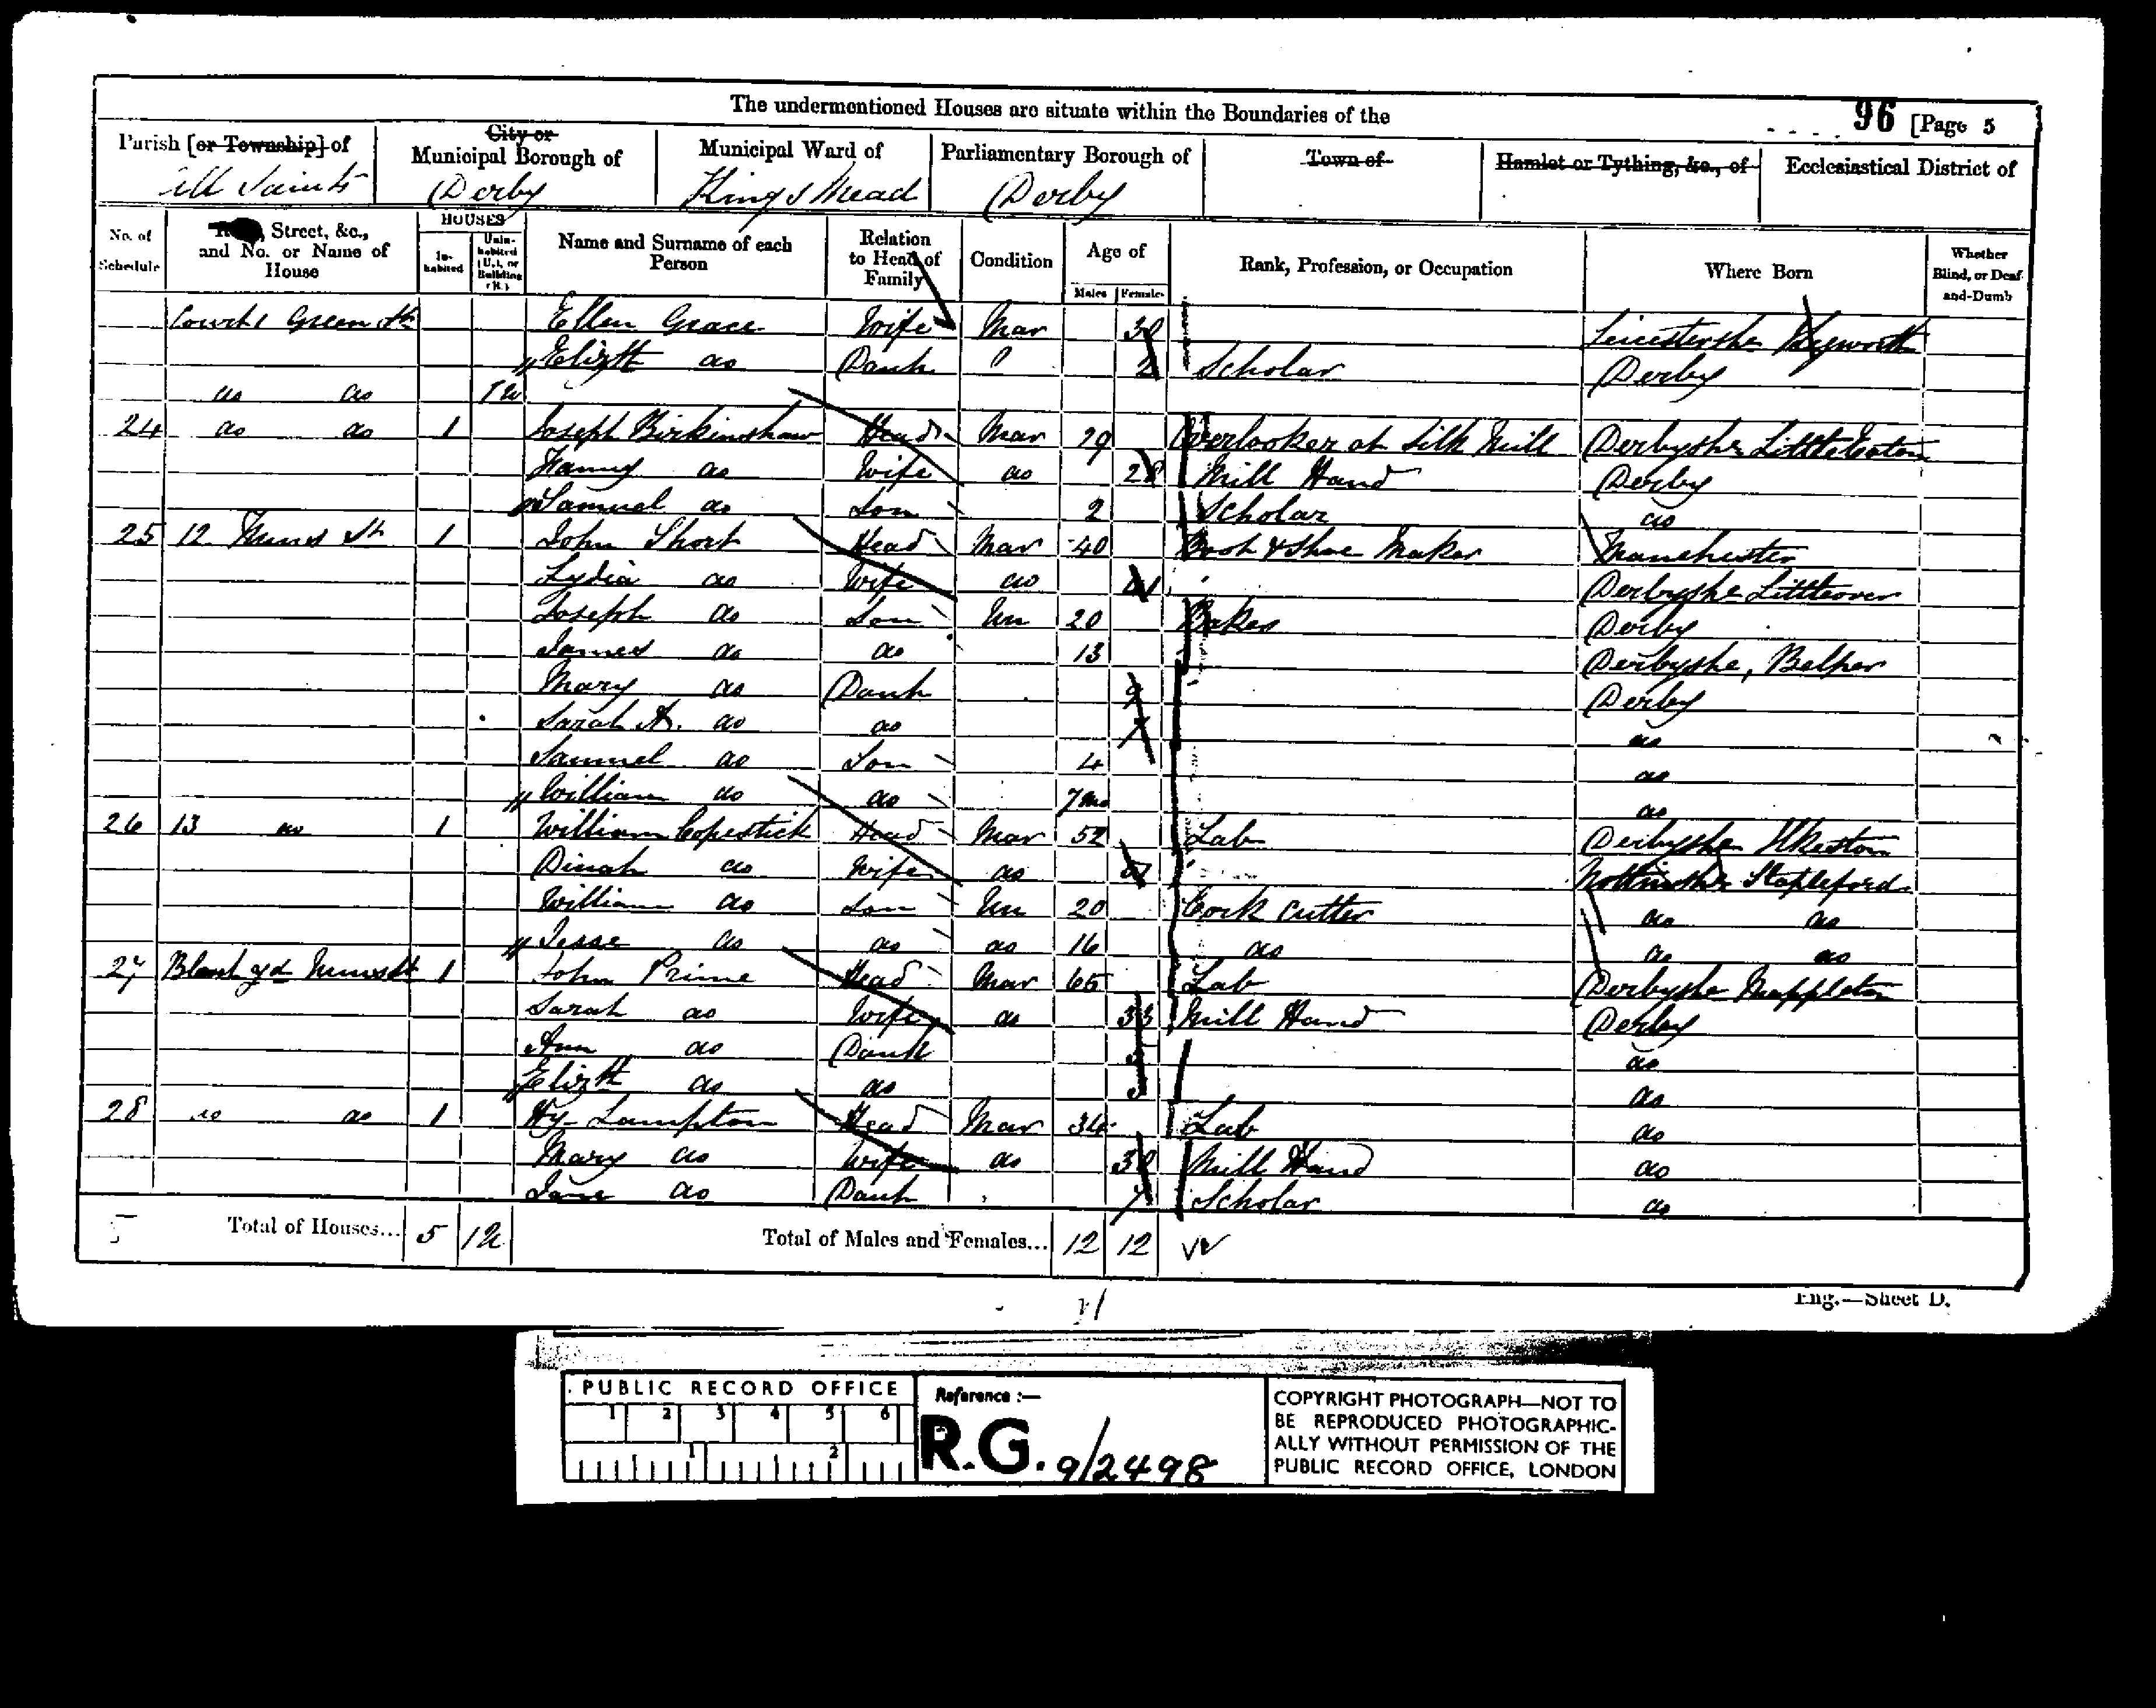 The undermentioned Houses are situate within the Boundaries of the
96 [Page 5
Parish [or Township] of All Saints
City or Municipal Borough of Derby
Municipal Ward of Kings Mead
Parliamentary Borough of Derby
Town of
Hamlet or Tything, &c., of
Ecclesiastical District of
No. of Schedule
Street, &c., and No. or Name of House
HOUSES
In-habited
Unin-habited (U.), or Building (B.)
Name and Surname of each Person
Relation to Head of Family
Condition
Age of
Males Females
Rank, Profession, or Occupation
Where Born
Whether Blind, or Deaf-and-Dumb
Court 1 Green St Ellen Grace Wife Mar Leicestershe
Elizth do Daur 2 Scholar Derby
do do 1 U
24 do do 1 Joseph Birkinshaw Head Mar 29 Overlooker at Silk Mill Derbyshe Little Eaton
Fanny do Wife do 28 Mill Hand Derby
Samuel do Son 2 Scholar do
25 12 Nuns St 1 John Short Head Mar 40 Boot & Shoe Maker Manchester
Lydia do Wife do 41 Derbyshe Littleover
Joseph do Son Un 20 Baker Derby
James do do 13 Derbyshe, Belper
Mary do Daur 9 Derby
Sarah A. do do 7 do
Samuel do Son 4 do
William do do 7 Mo do
26 13 do 1 William Copestick Head Mar 52 Lab Derbyshe Ilkeston
Dinah do Wife do Nottinshe Stapleford
William do Son Un 20 Cork Cutter do do
Jesse do do do 16 do do do
27 yd Nuns St 1 John Prime Head Mar 65 Lab Derbyshe Mappleton
Sarah do Wife do 33 Mill Hand Derby
Ann do Daur do
Elizth do do 3 do
28 do do 1 Hy Lampton Head Mar 34 Lab do
Mary do Wife do Mill Hand do
Jane do Daur 7 Scholar do
5 Total of Houses... 5 1 U Total of Males and Females... 12 12
Eng.—Sheet D.
PUBLIC RECORD OFFICE
1 2 3 4 5 6
1 2
Reference :—
R.G. 9/2498
COPYRIGHT PHOTOGRAPH—NOT TO
BE REPRODUCED PHOTOGRAPHIC-
ALLY WITHOUT PERMISSION OF THE
PUBLIC RECORD OFFICE, LONDON